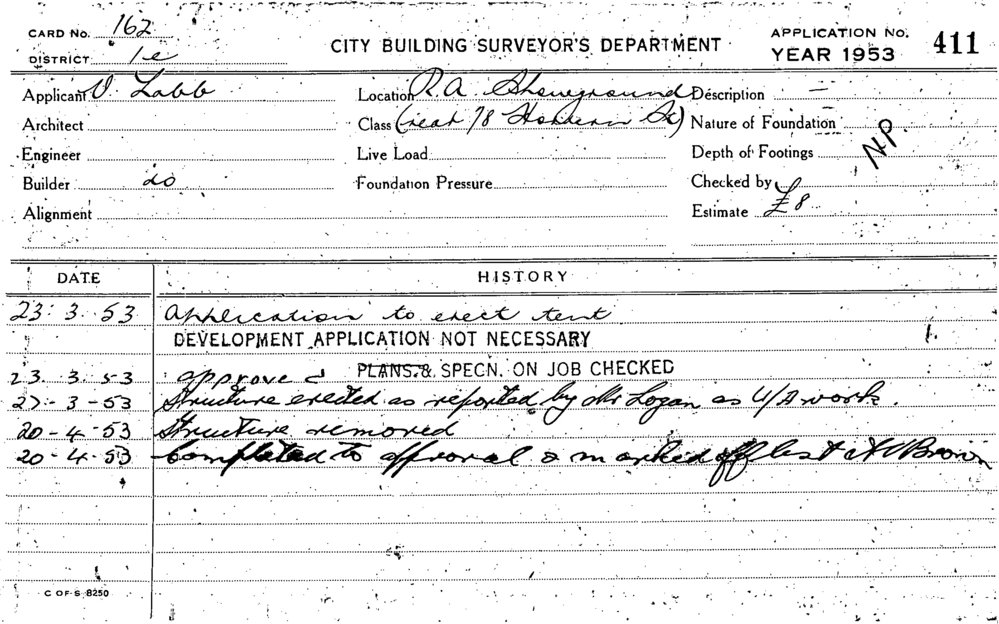 CARD NO. 162
DISTRICT 1e
CITY BUILDING SURVEYOR'S DEPARTMENT
APPLICATION NO. 411
YEAR 1953
Applicant V. Labb
Location R.A Showground
Description —
Architect
Class (rear 78 Hordern St)
Nature of Foundation —
Engineer
Live Load
Depth of Footings
NP
Builder do
Foundation Pressure
Checked by
Alignment
Estimate £8
DATE HISTORY
23. 3. 53 Application to erect tent
DEVELOPMENT APPLICATION NOT NECESSARY 1.
23. 3. 53 approved PLANS & SPECN. ON JOB CHECKED
27-3-53 Structure erected as reported by Mr Logan as U/A work.
20-4-53 Structure removed
20-4-53 Completed to approval & marked off list Brown
C OF S 8250